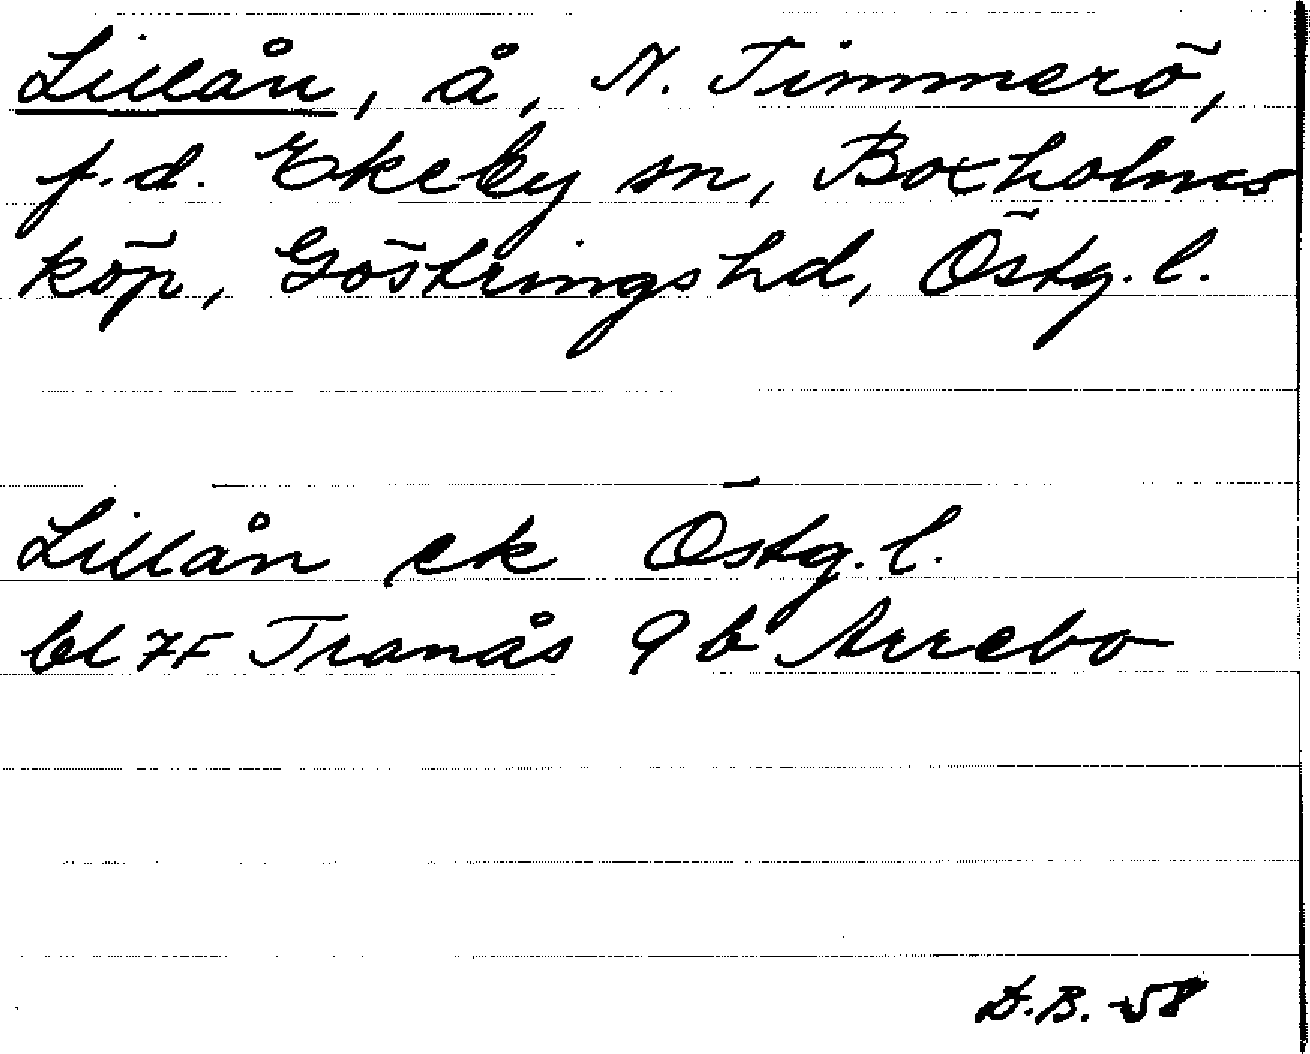 Lillån, å, N. Timmerö,
f.d. Ekeby sn, Boxholms
köp, Göstringshd, Östg. l.
Lillån ek Östg. l.
bl 7F Tranås 9 b Arrebo
D.B. -58